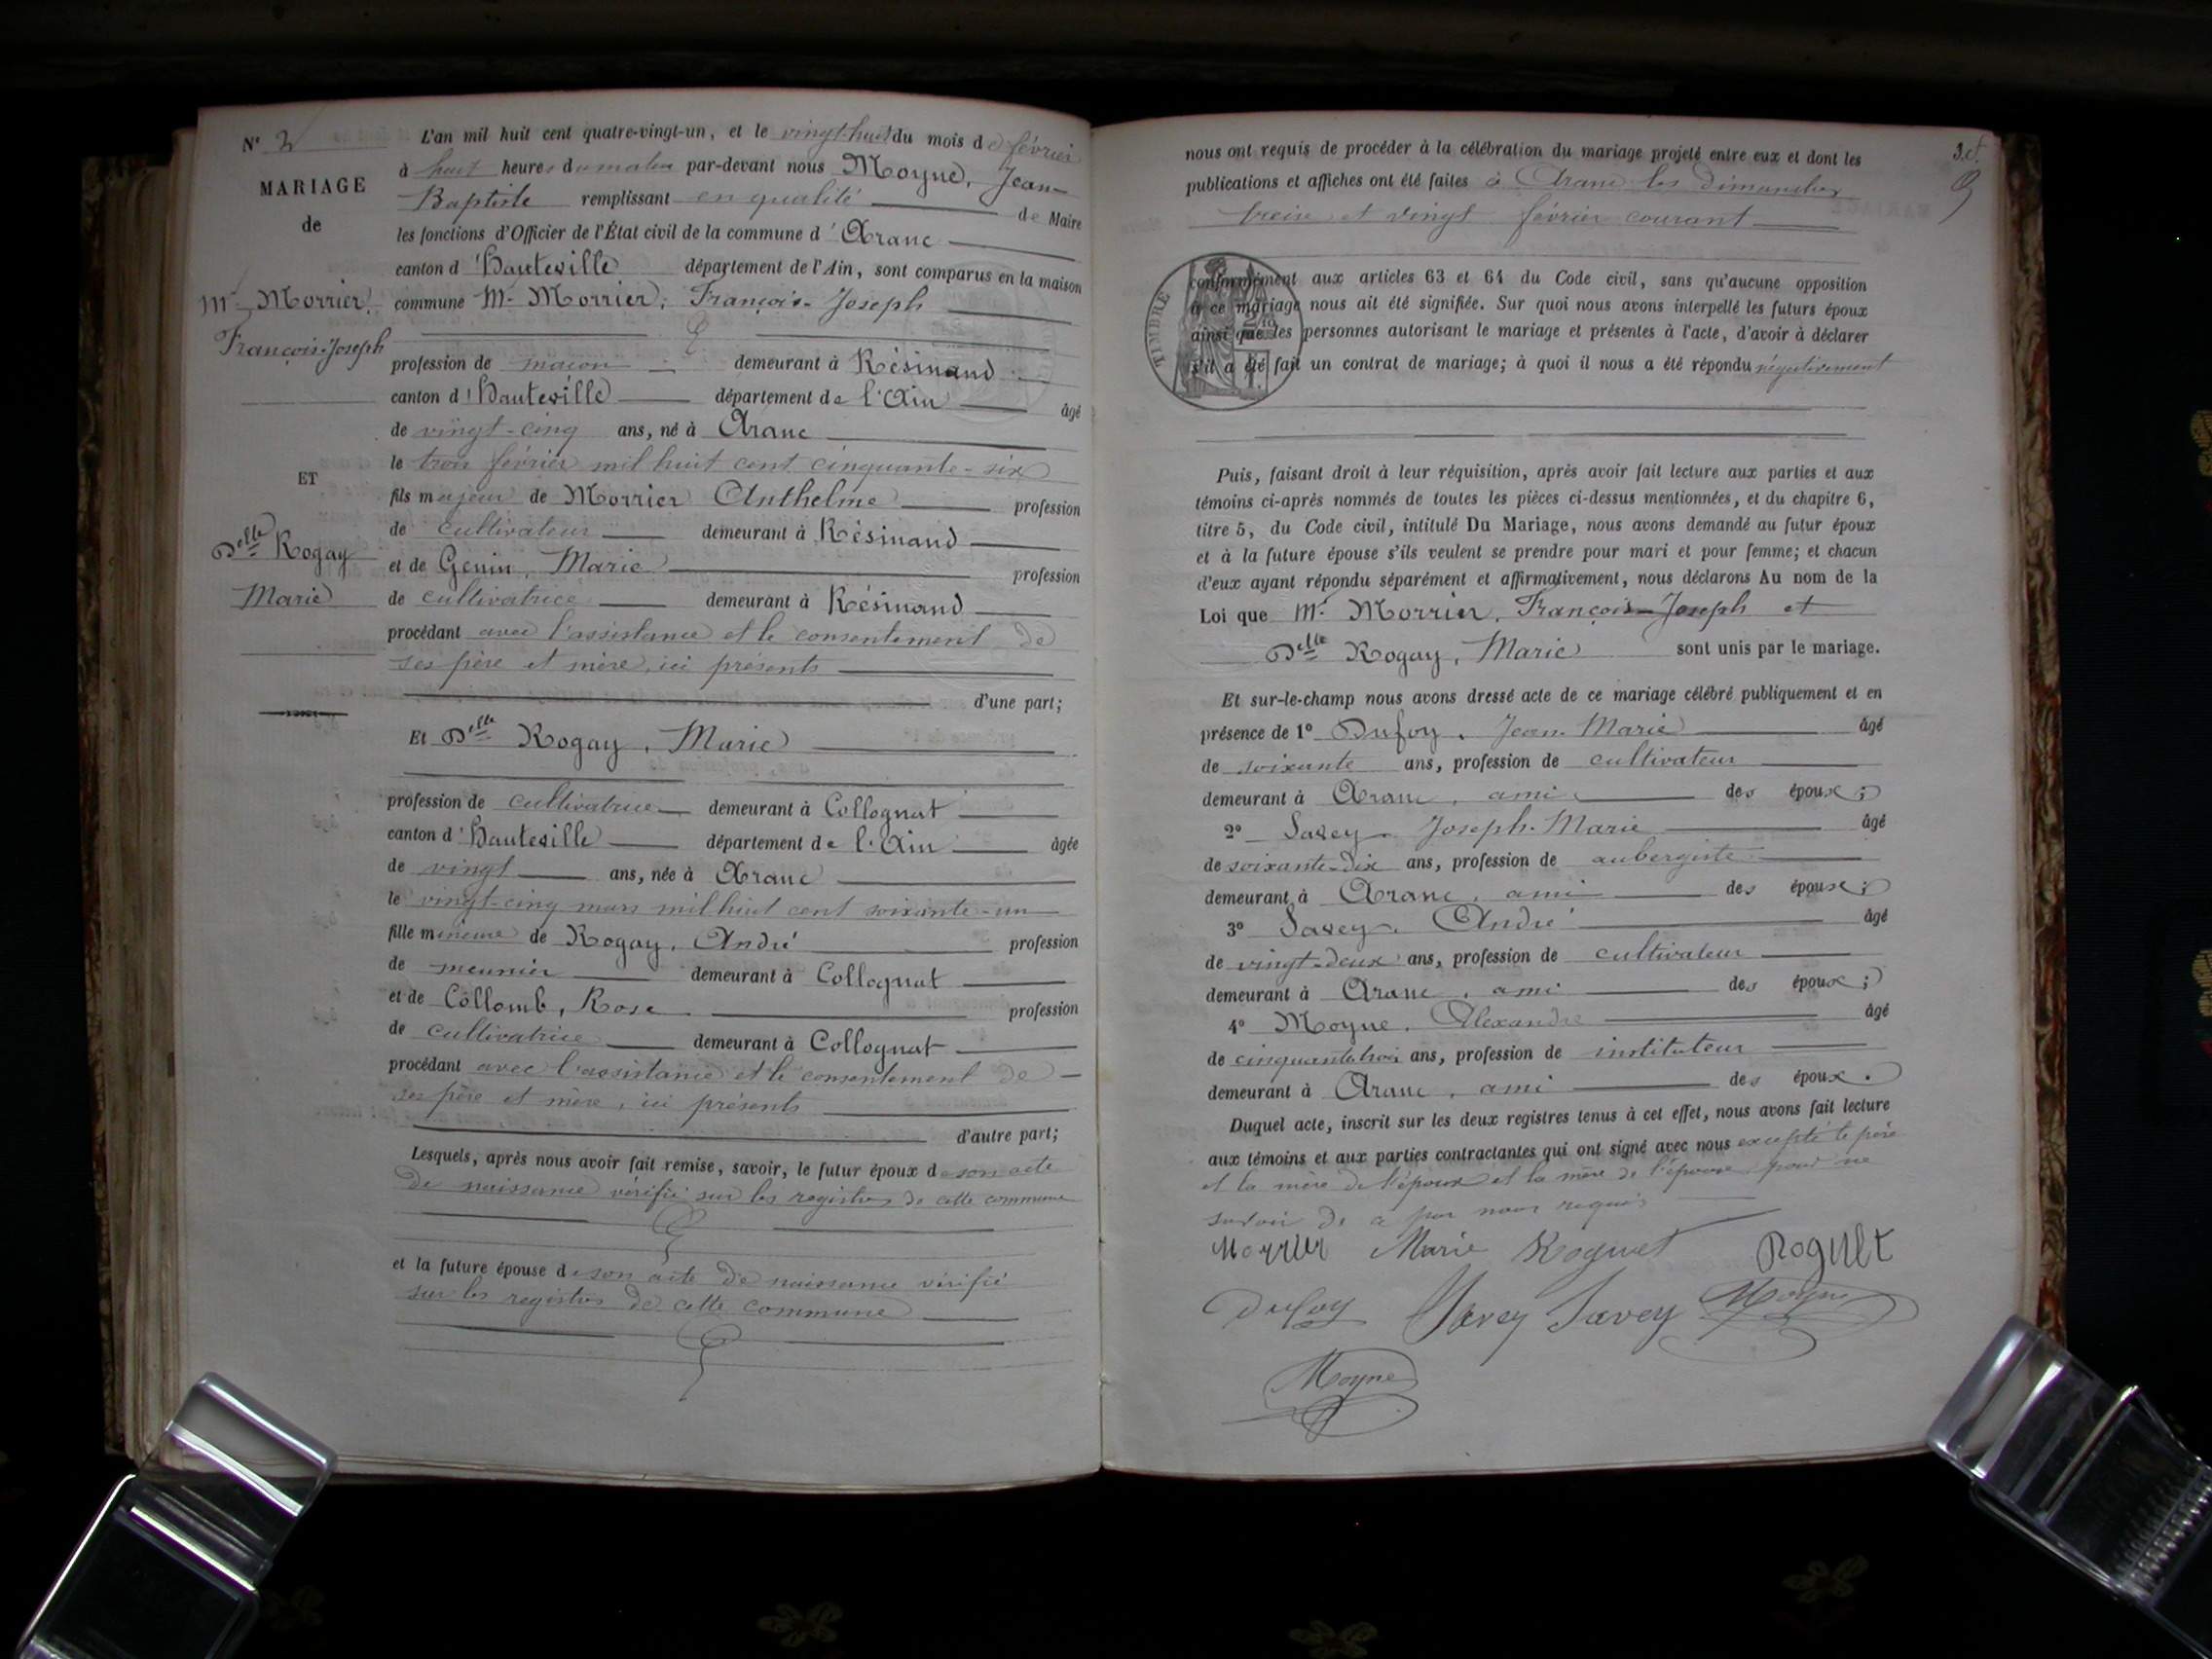 N° 2
MARIAGE
de
Mr Morrier,
François-Joseph
ET
Delle Rogay
Marie
L'an mil huit cent quatre-vingt-un, et le vingt-huit du mois de février
à huit heures du matin par-devant nous Moyne, Jean-
Baptiste remplissant en qualité de Maire
les fonctions d'Officier de l'État civil de la commune d'Aranc
canton d'Hauteville département de l'Ain, sont comparus en la maison
commune Mr Morrier, François-Joseph
profession de maçon demeurant à Résinand
canton d'Hauteville département de l'Ain âgé
de vingt-cinq ans, né à Aranc
le trois février mil huit cent cinquante-six
fils majeur de Morrier Anthelme profession
de cultivateur demeurant à Résinand
et de Genin, Marie profession
de cultivatrice demeurant à Résinand
procédant avec l'assistance et le consentement de
ses père et mère, ici présents
d'une part;
Et Delle Rogay, Marie
profession de cultivatrice demeurant à Collognat
canton d'Hauteville département de l'Ain âgée
de vingt ans, née à Aranc
le vingt-cinq mars mil huit cent soixante-un
fille mineure de Rogay, André profession
de meunier demeurant à Collognat
et de Collomb, Rose profession
de cultivatrice demeurant à Collognat
procédant avec l'assistance et le consentement de
ses père et mère, ici présents
d'autre part;
Lesquels, après nous avoir fait remise, savoir, le futur époux de son acte
de naissance vérifié sur les registres de cette commune
et la future épouse de son acte de naissance vérifié
sur les registres de cette commune
nous ont requis de procéder à la célébration du mariage projeté entre eux et dont les
publications et affiches ont été faites à Aranc les dimanches
treize et vingt février courant
TIMBRE
conformément aux articles 63 et 64 du Code civil, sans qu'aucune opposition
à ce mariage nous ait été signifiée. Sur quoi nous avons interpellé les futurs époux
ainsi que les personnes autorisant le mariage et présentes à l'acte, d'avoir à déclarer
s'il a été fait un contrat de mariage; à quoi il nous a été répondu négativement
Puis, faisant droit à leur réquisition, après avoir fait lecture aux parties et aux
témoins ci-après nommés de toutes les pièces ci-dessus mentionnées, et du chapitre 6,
titre 5, du Code civil, intitulé Du Mariage, nous avons demandé au futur époux
et à la future épouse s'ils veulent se prendre pour mari et pour femme; et chacun
d'eux ayant répondu séparément et affirmativement, nous déclarons Au nom de la
Loi que Mr Morrier, François-Joseph et
Delle Rogay, Marie sont unis par le mariage.
Et sur-le-champ nous avons dressé acte de ce mariage célébré publiquement et en
présence de 1° Dufoy, Jean-Marie âgé
de soixante ans, profession de cultivateur
demeurant à Aranc, ami des époux;
2° Savey, Joseph-Marie âgé
de soixante-dix ans, profession de aubergiste
demeurant à Aranc, ami des époux;
3° Savey, André âgé
de vingt-deux ans, profession de cultivateur
demeurant à Aranc, ami des époux;
4° Moyne, Alexandre âgé
de cinquante trois ans, profession de instituteur
demeurant à Aranc, ami des époux.
Duquel acte, inscrit sur les deux registres tenus à cet effet, nous avons fait lecture
aux témoins et aux parties contractantes qui ont signé avec nous excepté le père
et la mère de l'époux et la mère de l'épouse pour ne
savoir de ce par nous requis
Morrier Marie Roguet Roguet
Dufoy Savey Savey Moyne
Moyne